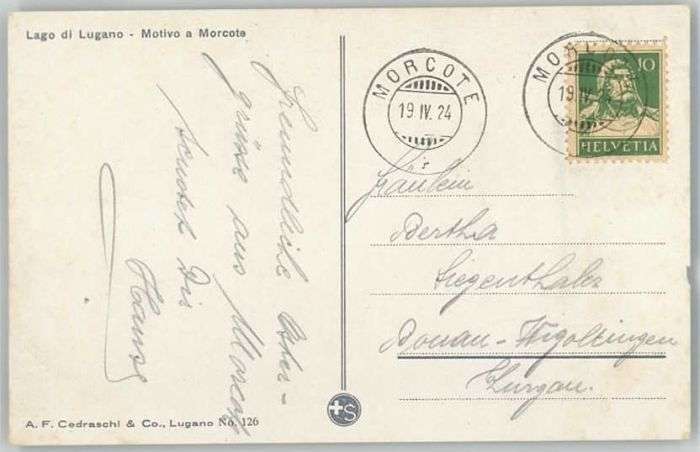 Lago di Lugano - Motivo a Morcote
Freundliche Oster-
grüsse aus Morcote
sendet Dir
Hans
A. F. Cedraschi & Co., Lugano No. 126
MORCOTE
19 IV. 24
MORCO
19 IV.
10
HELVETIA
Fräulein
Bertha
Siegenthaler
Donau-Wigoltingen
Turgau.
+S